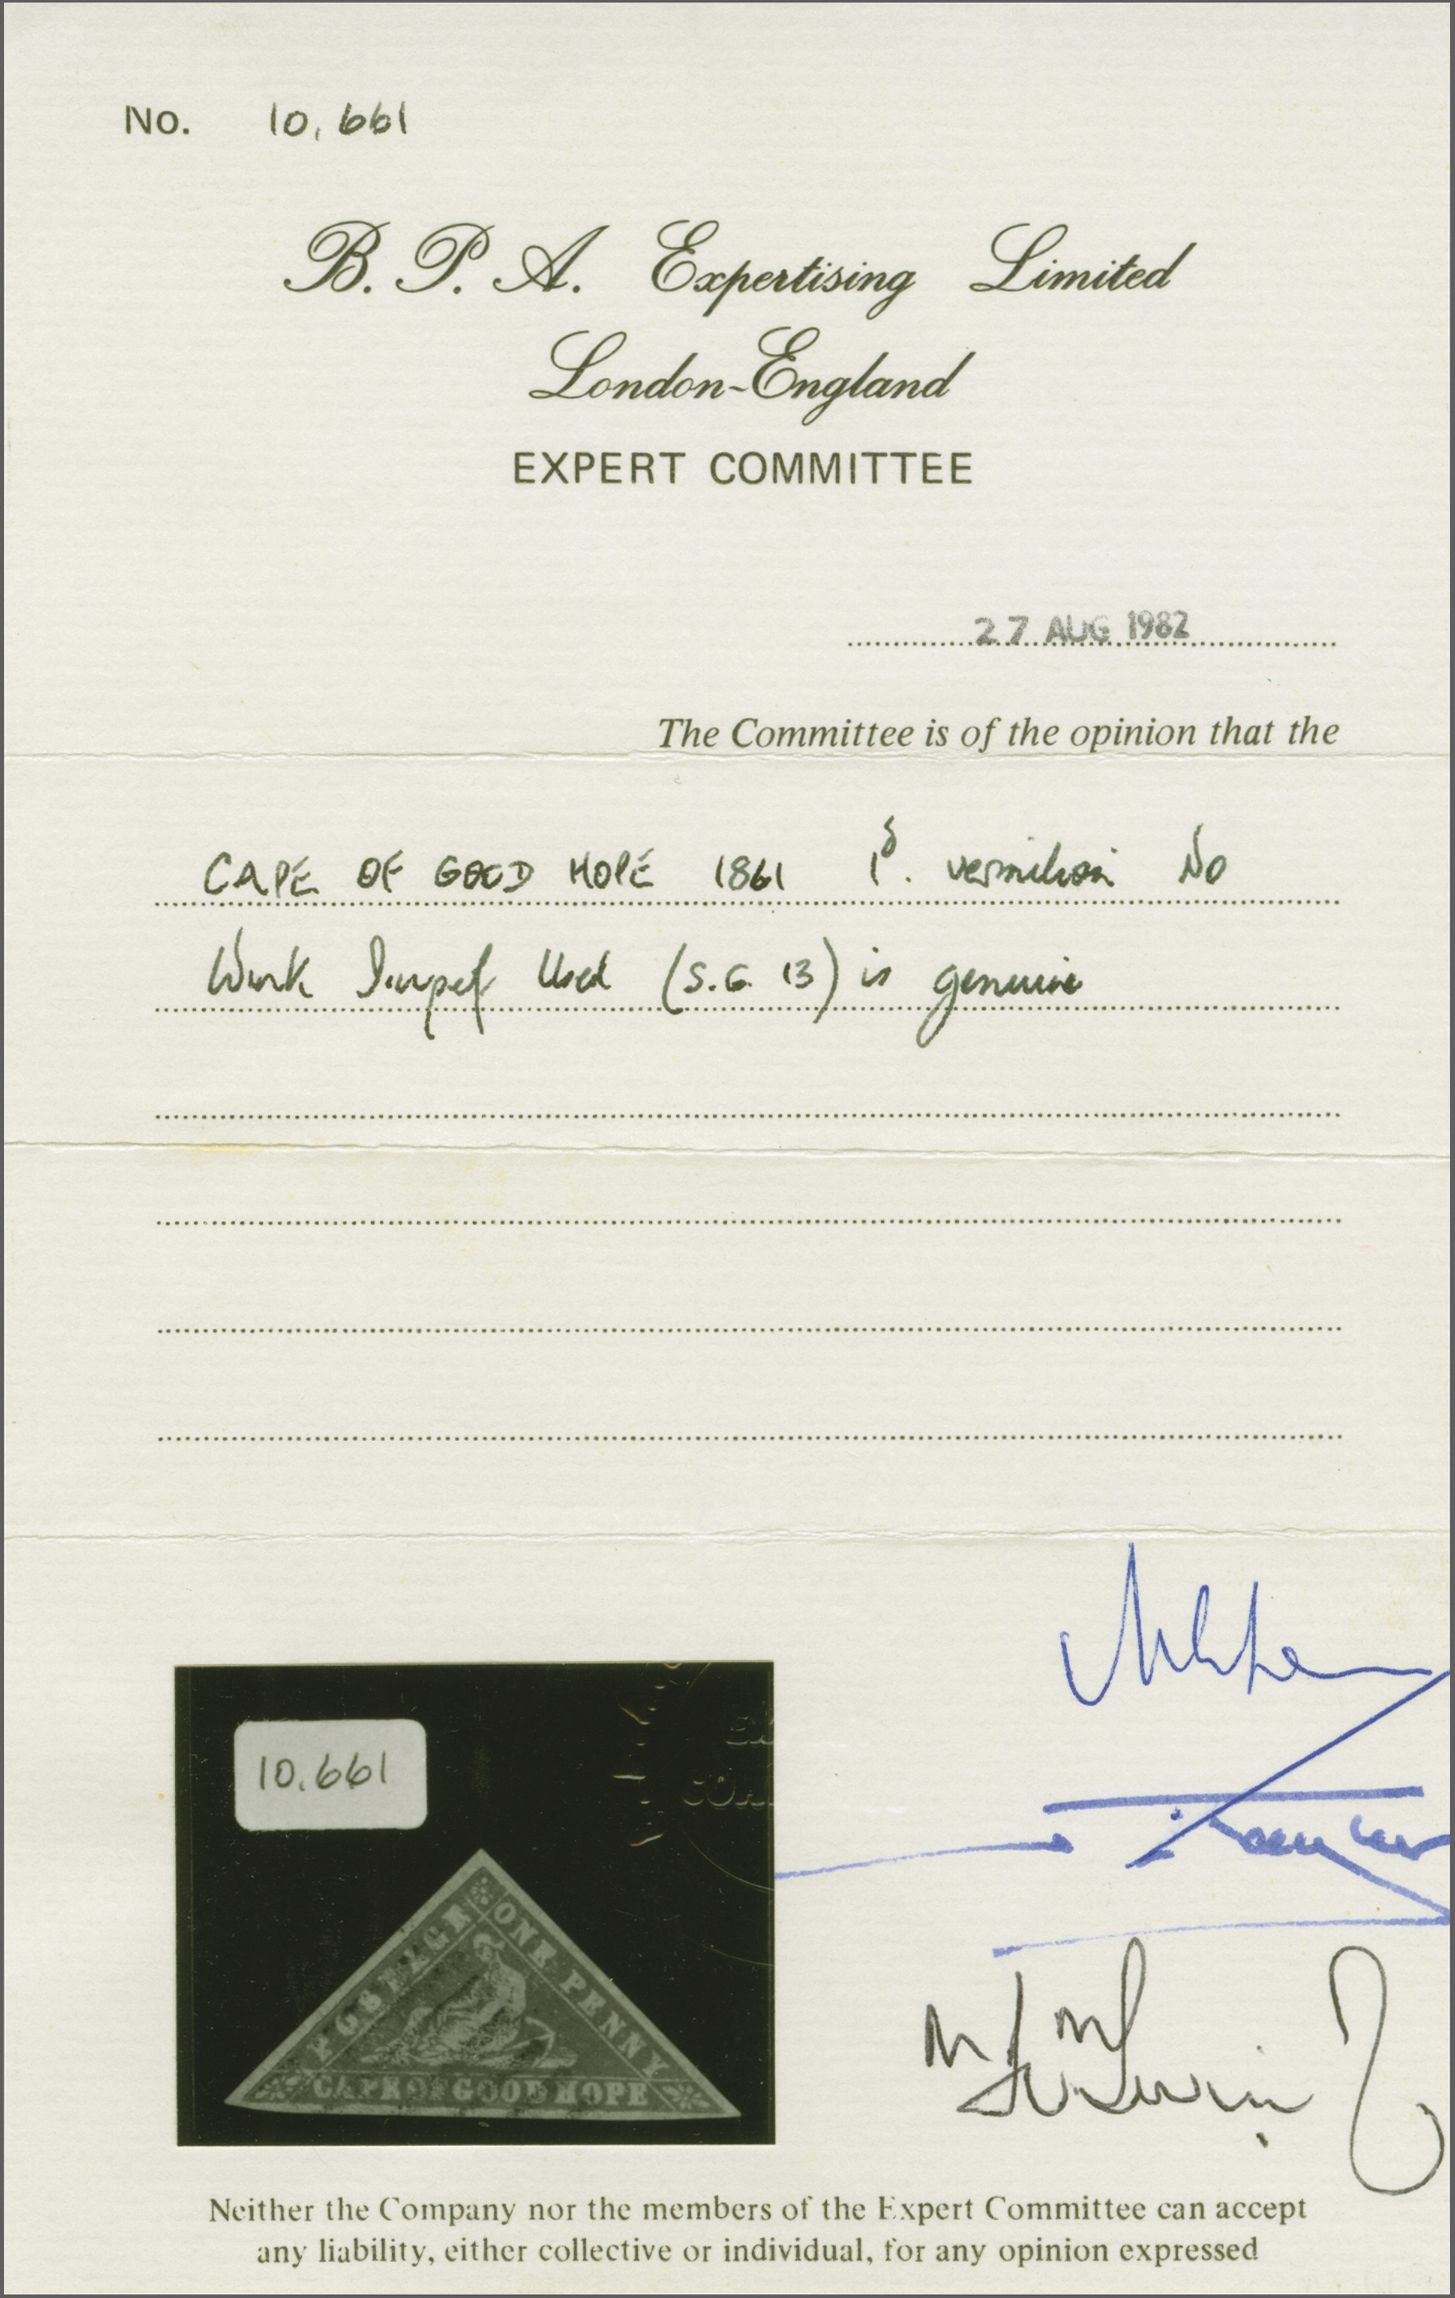 No. 10,661
B. P. A. Expertising Limited
London-England
EXPERT COMMITTEE
27 AUG 1982
The Committee is of the opinion that the
CAPE OF GOOD HOPE 1861 1d. vermilion No
Wmk Imperf Used (S.G. 13) is genuine
10.661
POSTAGE ONE PENNY
CAPE OF GOOD HOPE
Neither the Company nor the members of the Expert Committee can accept
any liability, either collective or individual, for any opinion expressed